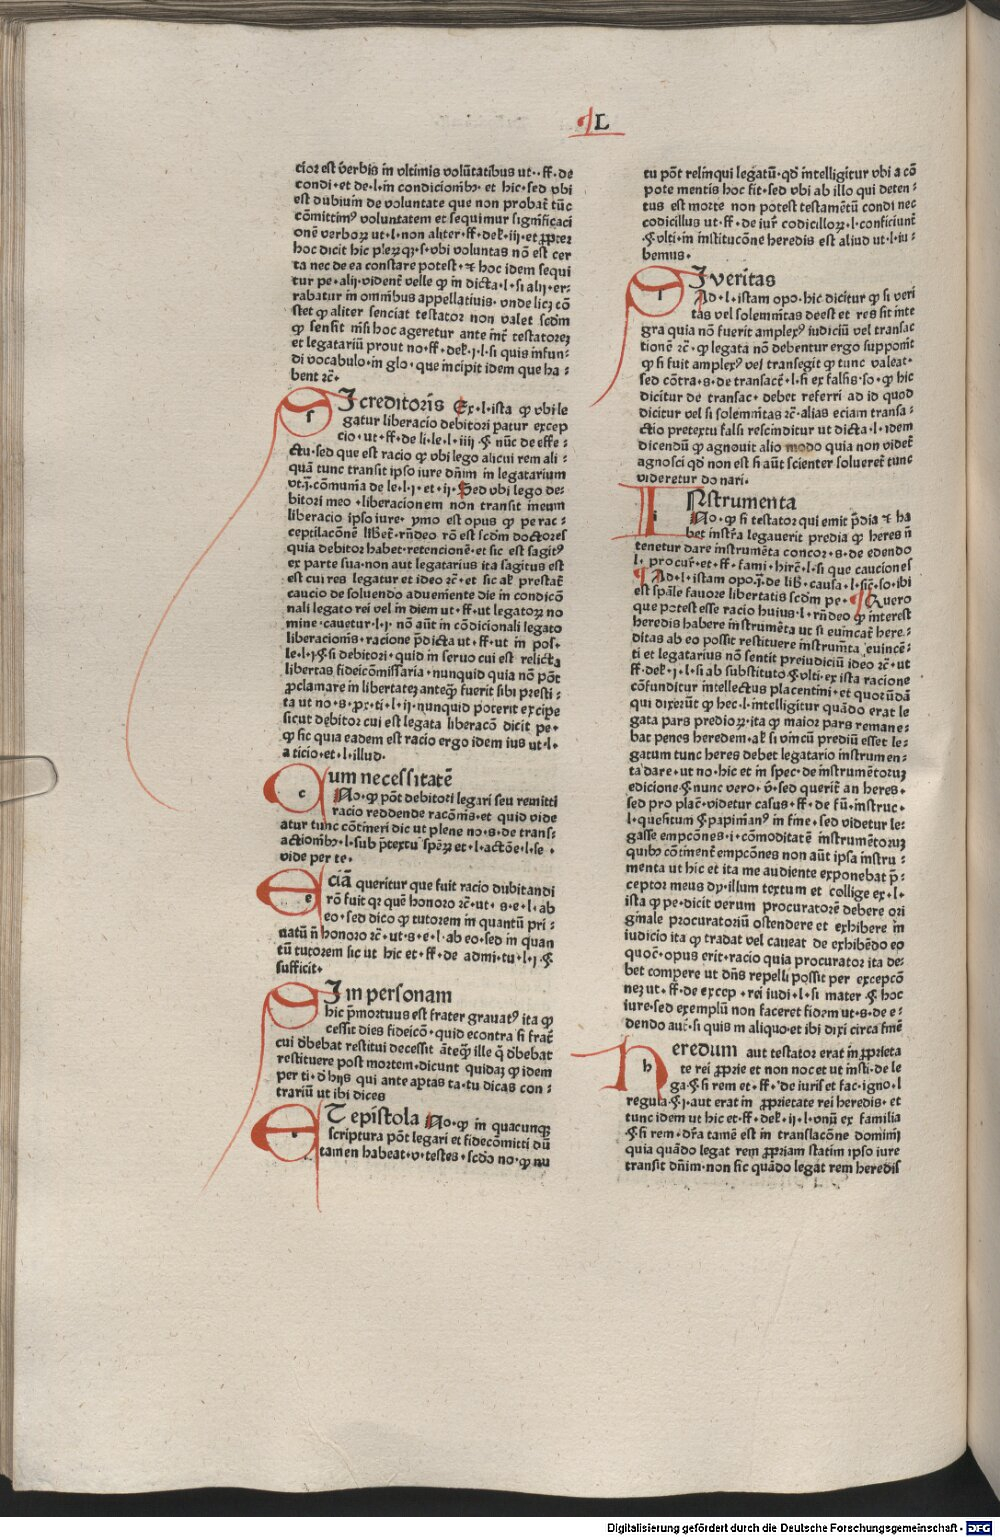 L
cior est v̄erbis in vltimis volūtatibus ut·· ff· de
condi· et de·l·in condicionib; et hic·sed vbi
est dubium de voluntate que non probat̄ tūc
cōmittimꝰ voluntatem et sequimur significaci
onē verboꝝ ut·l·non aliter·ff·deł·iij·et ꝓpter
hoc dicit hic pleꝝqꝫ·s·vbi voluntas nō est cer
ta nec de ea constare potest·⁊ hoc idem sequi
tur pe·alij·vident̄ velle ꝙ in dicta·l·si alij·er-
rabatur in omnibus appellatiuis·vnde licꝫ cō
stet ꝙ aliter senciat testator non valet scdm̄
ꝙ sensit nisi hoc ageretur ante int̄ testatorē
et legatariū prout no·ff·deł·j·l·si quis infun-
di vocabulo·in glo·que incipit idem que ha-
bent rc̄·
SI creditoris Ex·l·ista ꝙ vbi le
gatur liberacio debitori patur excep
cio·ut·ff·de li·le·l·iiij·§ nūc de effe-
ctu·sed que est racio ꝙ vbi lego alicui rem ali-
quā tunc transit ipso iure dn̄im in legatarium
vt·j̄·cōmunia de le·l·j·et·ij·Sed vbi lego de-
bitori meo·liberacionem non transit ineum
liberacio ipso iure·ymo est opus ꝙ perac-
ceptilacōnē liƀet̄·rn̄deo rō est scdm̄ doctores
quia debitor habet·retencionē·et sic est sagitꝰ
ex parte sua·non aut legatarius ita sagitus est
est cui res legatur et ideo rc̄·et sic aƚ prestat̄
caucio de soluendo adueniente die in condicō
nali legato rei vel in diem ut·ff·ut legatoꝝ no
mine·cauetur·l·j·nō aūt in cōdicionali legato
liberacionis·racione p̄dicta ut·ff·ut in pos-
le·l·j·§ si debitori·quid in seruo cui est relicta
libertas fideicōmissaria·nunquid quia nō pōt
ꝓclamare in libertateꝫ anteqꝫ fuerit sibi presti-
ta ut no·s·ꝓx·ti·l·ij·nunquid poterit excipe
sicut debitor cui est legata liberacō dicit pe·
ꝙ sic quia eadem est racio ergo idem ius ut·l·
a ticio·et·l·illud·
cum necessitatē
No·ꝙ pōt debitori legari seu remitti
racio reddende racōnis·et quid vide
atur tunc cōtineri dic ut plene no·s·de trans-
actionib;·l·sub p̄textu speꝝ et·l·actōe·l·se·
vide per te·
Eciā queritur que fuit racio dubitandi
rō fuit qr quē honoro rc̄·ut·s·e·l·ab
eo·sed dico ꝙ tutorem in quantū pri-
uatū n̄ honoro rc̄·ut·s·e·l·ab eo·sed in quan
tū tutorem sic ut hic et·ff·de admi·tu·l·j·§
sufficit·
SI in personam
hic p̄mortuus est frater grauatꝰ ita ꝙ
cessit dies fideicō·quid econtra si frat̄
cui d̄bebat restitui decessit ānteꝙ ille ꝙ d̄bebat
restituere post mortem·dicunt quidaꝫ ꝙ idem
per ti·d̄ hijs qui ante aptas ta·tu dicas con-
trariū ut ibi dices
ET epistola No·ꝙ in quacunqꝫ
scriptura pōt legari et fidecōmitti dū
tamen habeat·v·testes·scd̄o no·ꝙ nu
tu pōt relinqui legatū·qd̄ intelligitur vbi a cō
pote mentis hoc fit·sed vbi ab illo qui deten-
tus est morte non potest testamētū condi nec
codicillus ut·ff·de iur̄ codicilloꝝ·l·conficiunt̄
·§·vlti·in institucōne heredis est aliud ut·l·iu-
bemus·
SI veritas
Ad·l·istam opo·hic dicitur ꝙ si veri
tas vel solemnitas deest et res sit inte
gra quia nō fuerit amplexꝰ iudiciū vel transac
tionē rc̄·ꝙ legata nō debentur ergo supponit̄
ꝙ si fuit amplexꝰ vel transegit ꝙ tunc valeat·
sed cōtra·s·de transact̄·l·si ex falsis·so·ꝙ hic
dicitur de transac·debet referri ad id quod
dicitur vel si solemnitas rc̄·alias eciam transa-
ctio pretextu falsi rescinditur ut dicta·l·idem
dicendū ꝙ agnouit alio modo quia non videt̄
agnosci qd̄ non est si aūt scienter solueret̄ tunc
videretur donari·
INstrumenta
No·ꝙ si testator qui emit p̄dia ⁊ ha
bet instr̄a legauerit predia ꝙ heres n̄
tenetur dare instrumēta concor·s·de edendo
l·procur̄·et·ff·fami·hirē·l·si que cauciones
Ad·l·istam opo·j̄·de liƀ·causa·l·sic̄·so·ibi
est spāle fauore libertatis scdm̄ pe·Quero
que potest esse racio huius·l·rn̄deo ꝙ interest
heredis habere instrumēta ut si euincat̄ here-
ditas ab eo possit restituere instrum̄ta euincē-
ti et legatarius nō sentit preiudiciū ideo rc̄·ut
ff·deł·j·l·si ab substituto·§·vlti·ex ista racione
cōfunditur intellectus placentini·et quorūdā
qui dixerūt ꝙ hec·l·intelligitur quādo erat le
gata pars predioꝝ·ita ꝙ maior pars remane-
bat penes heredem·aƚ si vnicū prediū esset le-
gatum tunc heres debet legatario instrumen-
ta dare·ut no·hic et in spec·de instrumētoruꝫ
edicione·§ nunc vero·v̄·sed querit̄ an heres·
sed pro plac̄·videtur casus·ff·de fū·instruc·
l·quesitum §·papinianꝰ in fine·sed videtur le-
gasse empcōnes·i·cōmoditatē instrumētoruꝫ
quib; cōtinent̄ empcōnes non aūt ipsa instru-
menta ut hic et ita me audiente exponebat p̄-
ceptor meus dꝭ·illum textum et collige ex·l·
ista ꝙ pe·dicit verum procuratorē debere ori
ginale procuratoriū ostendere et exhibere in
iudicio ita ꝙ tradat vel caueat de exhibēdo eo
quoc̄·opus erit·racio quia procurator ita de-
bet compere ut dn̄s repelli possit per excepcō
neꝫ ut·ff·de excep·rei iudi·l·si mater § hoc
iure·sed exemplū non faceret fidem ut·s·de e-
dendo auc̄·si quis in aliquo·et ibi dixi circa finē
heredum aut testator erat in ꝓprieta
te rei ꝓprie et non nocet ut insti·de le
ga·§ si rem et·ff·de iuris et fac·igno·l
regula·§·j·aut erat in ꝓprietate rei heredis·et
tunc idem ut hic et·ff·deł·ij·l·vnū ex familia
·§·si rem·dr̄a tamē est in translacōne dominij
quia quādo legat rem ꝓpriam statim ipso iure
transit dn̄im·non sic quādo legat rem heredis
Digitalisierung gefördert durch die Deutsche Forschungsgemeinschaft - DFG